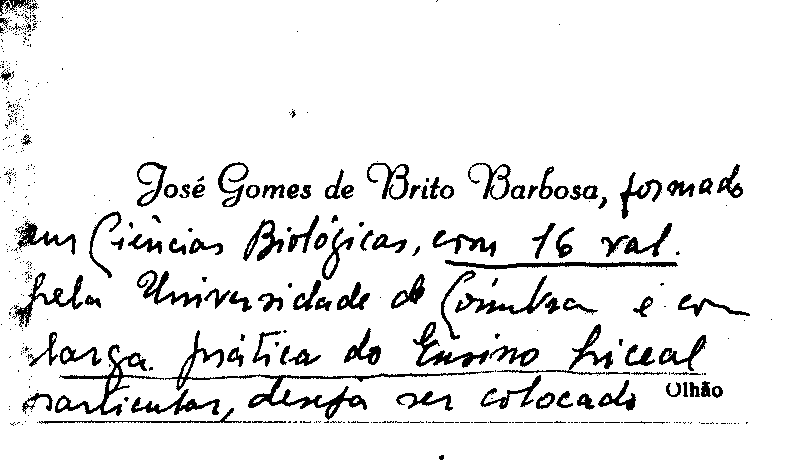 José Gomes de Brito Barbosa, formado
em Ciências Biológicas, com 16 val.
pela Universidade de Coimbra e com
larga prática do Ensino Liceal
particular, deseja ser colocado Olhão